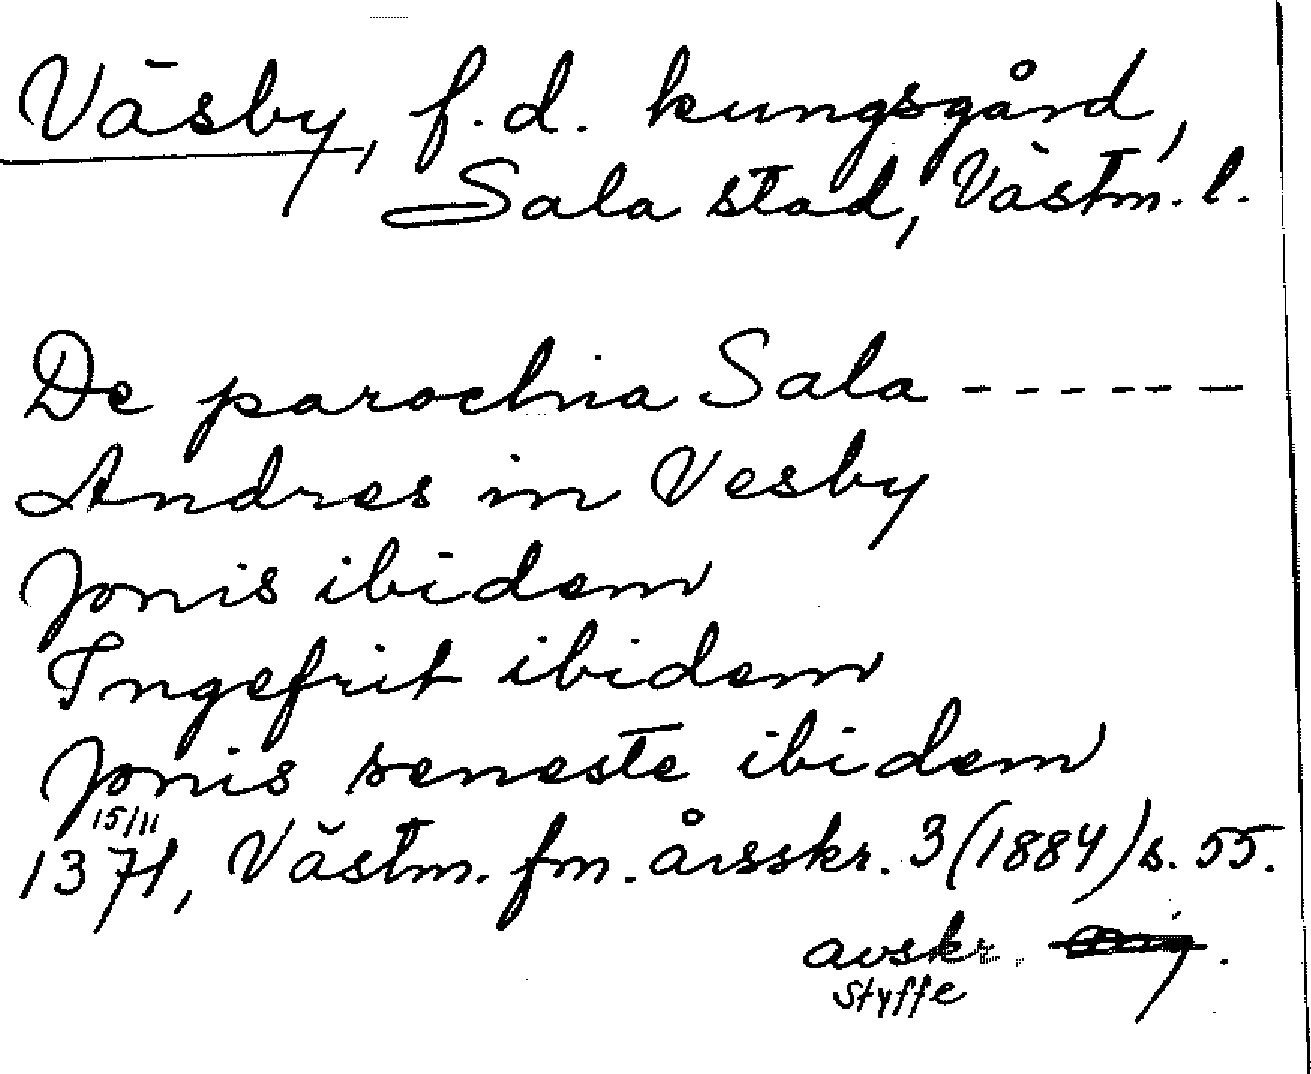 Väsby, f.d. kungsgård,
Sala stad, Västm. l.
De parochia Sala ------
Andres in Vesby
Jonis ibidem
Ingefrit ibidem
Jonis seneste ibidem
15/11
1371, Västm. fm. årsskr. 3 (1884) s. 55.
avskr.
Styffe